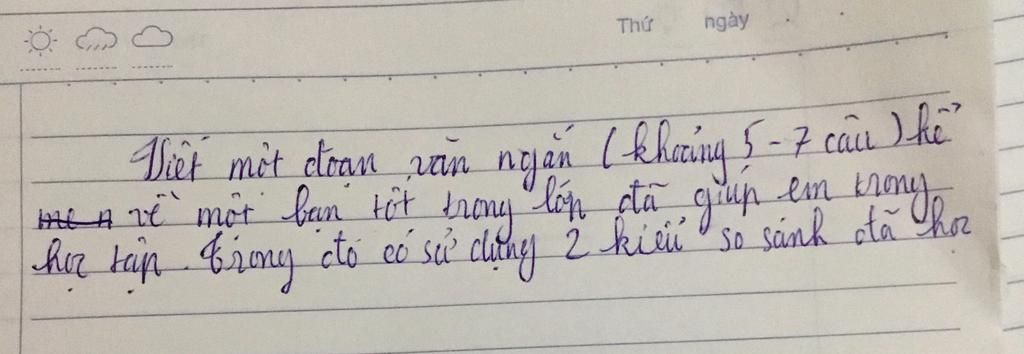 Thứ ngày
Viết một đoạn văn ngắn (khoảng 5-7 câu) kể
về một bạn tốt trong lớp đã giúp em trong
học tập. Trong đó có sử dụng 2 kiểu so sánh đã học